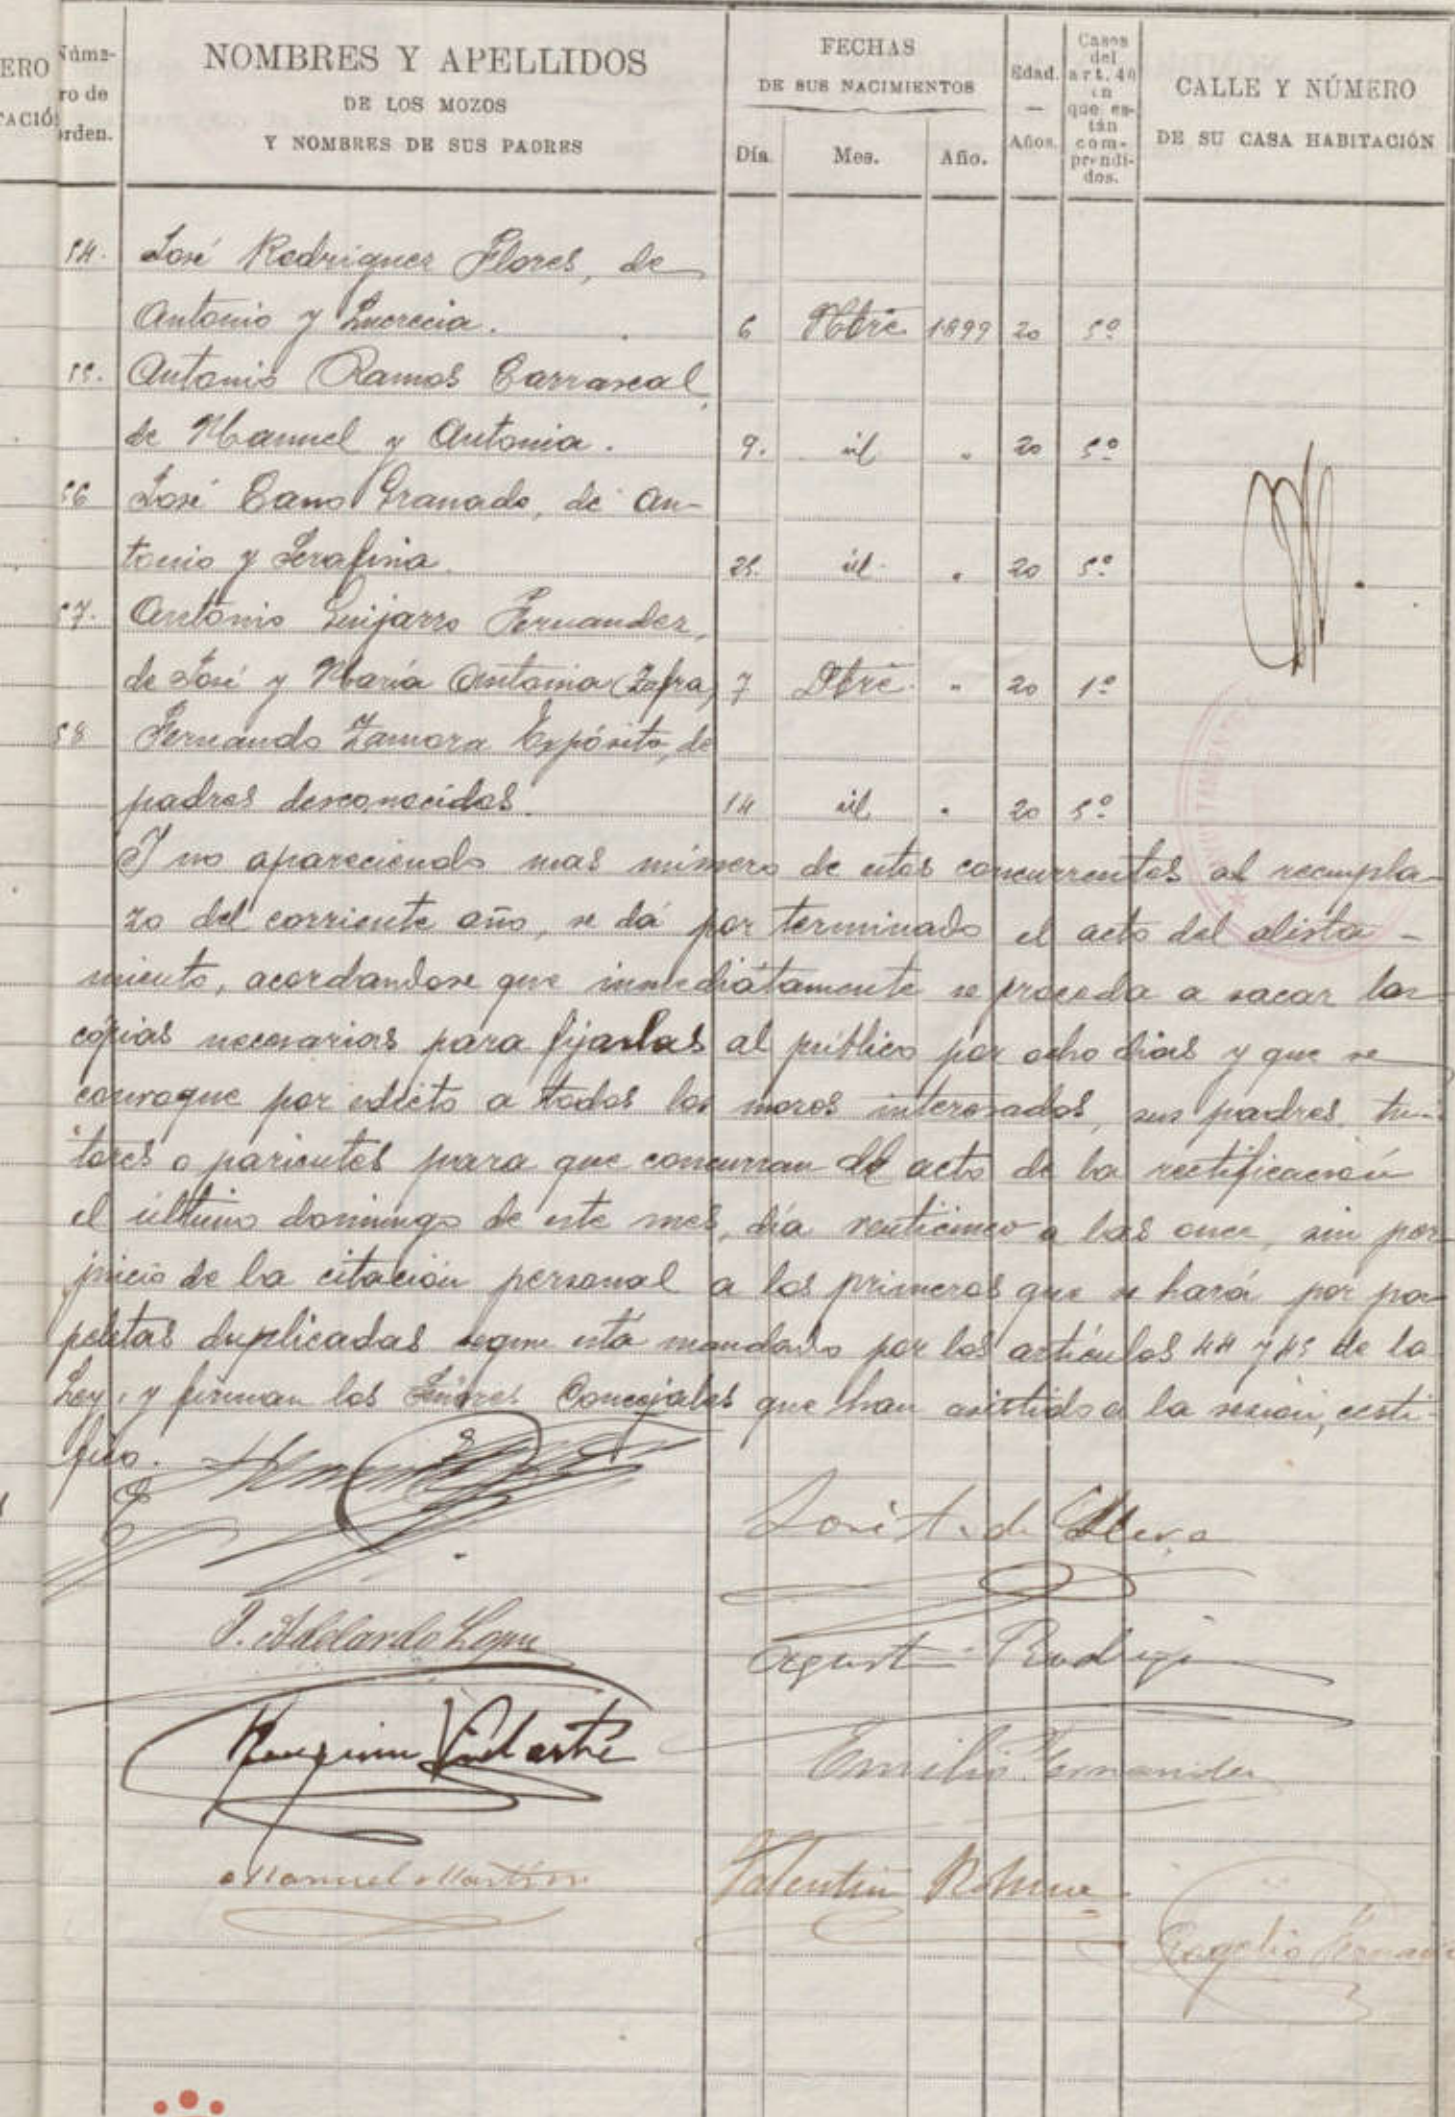 ERO
TACIÓ
Núme-
ro de
orden.
NOMBRES Y APELLIDOS
DE LOS MOZOS
Y NOMBRES DE SUS PADRES
FECHAS
DE SUS NACIMIENTOS
Día.
Mes.
Año.
Edad.
—
Años.
Casos
del
art. 40
en
que es-
tán
com-
prendi-
dos.
CALLE Y NÚMERO
DE SU CASA HABITACIÓN
54. José Rodriguez Flores, de
Antonio y Lucrecia. 6 Nbre 1899 20 5º
55. Antonio Ramos Carrascal,
de Manuel y Antonia. 9. id " 20 5º
56 José Cano Granado, de An-
tonio y Serafina. 25. id. " 20 5º
57. Antonio Guijarro Fernandez,
de José y María Antonia (Zafra) 7 Dbre. " 20 1º
58 Fernando Zamora Expósito, de
padres desconocidos. 14 id " 20 5º
Y no apareciendo mas número de estos concurrentes al reempla-
zo del corriente año, se dá por terminado el acto del alista-
miento, acordandose que inmediátamente se proceda a sacar las
cópias necesarias para fijarlas al público por ocho dias y que se
convoque por edicto a todos los mozos interesados, sus padres, tu-
tores o parientes para que concurran al acto de la rectificación
el último domingo de este mes, día venticinco a las once, sin per
juicio de la citación personal a los primeros que se hará por pa-
peletas duplicadas segun está mandado por los artículos 44 y 45 de la
Ley, y firman los Señores Concejales que han asistido a la sesión, certi-
fico.
José A. de
P. Abelardo Lopez
Agustin Rodrigu
Joaquin
Emilio Fernandez
Manuel Martin
Valentin
Rogelio Fernand